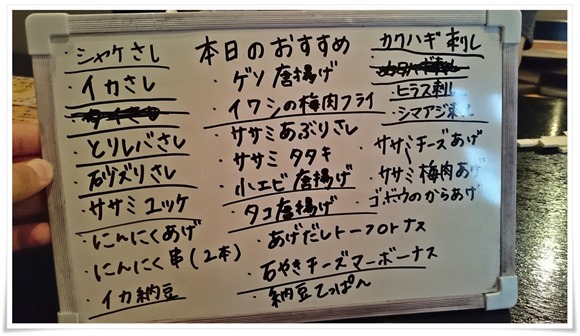 本日のおすすめ
・シャケさし
・イカさし
・とりレバさし
・砂ズリさし
・ササミユッケ
・にんにくあげ
・にんにく串(2本)
・イカ納豆
・ゲソ唐揚げ
・イワシの梅肉フライ
・ササミあぶりさし
・ササミタタキ
・小エビ唐揚げ
・タコ唐揚げ
・あげだしトーフロトナス
・石やきチーズマーボーナス
・納豆てっぱん
カワハギ刺し
・ヒラス刺し
・シマアジ
・ササミチーズあげ
・ササミ梅肉あげ
・ゴボウのからあげ